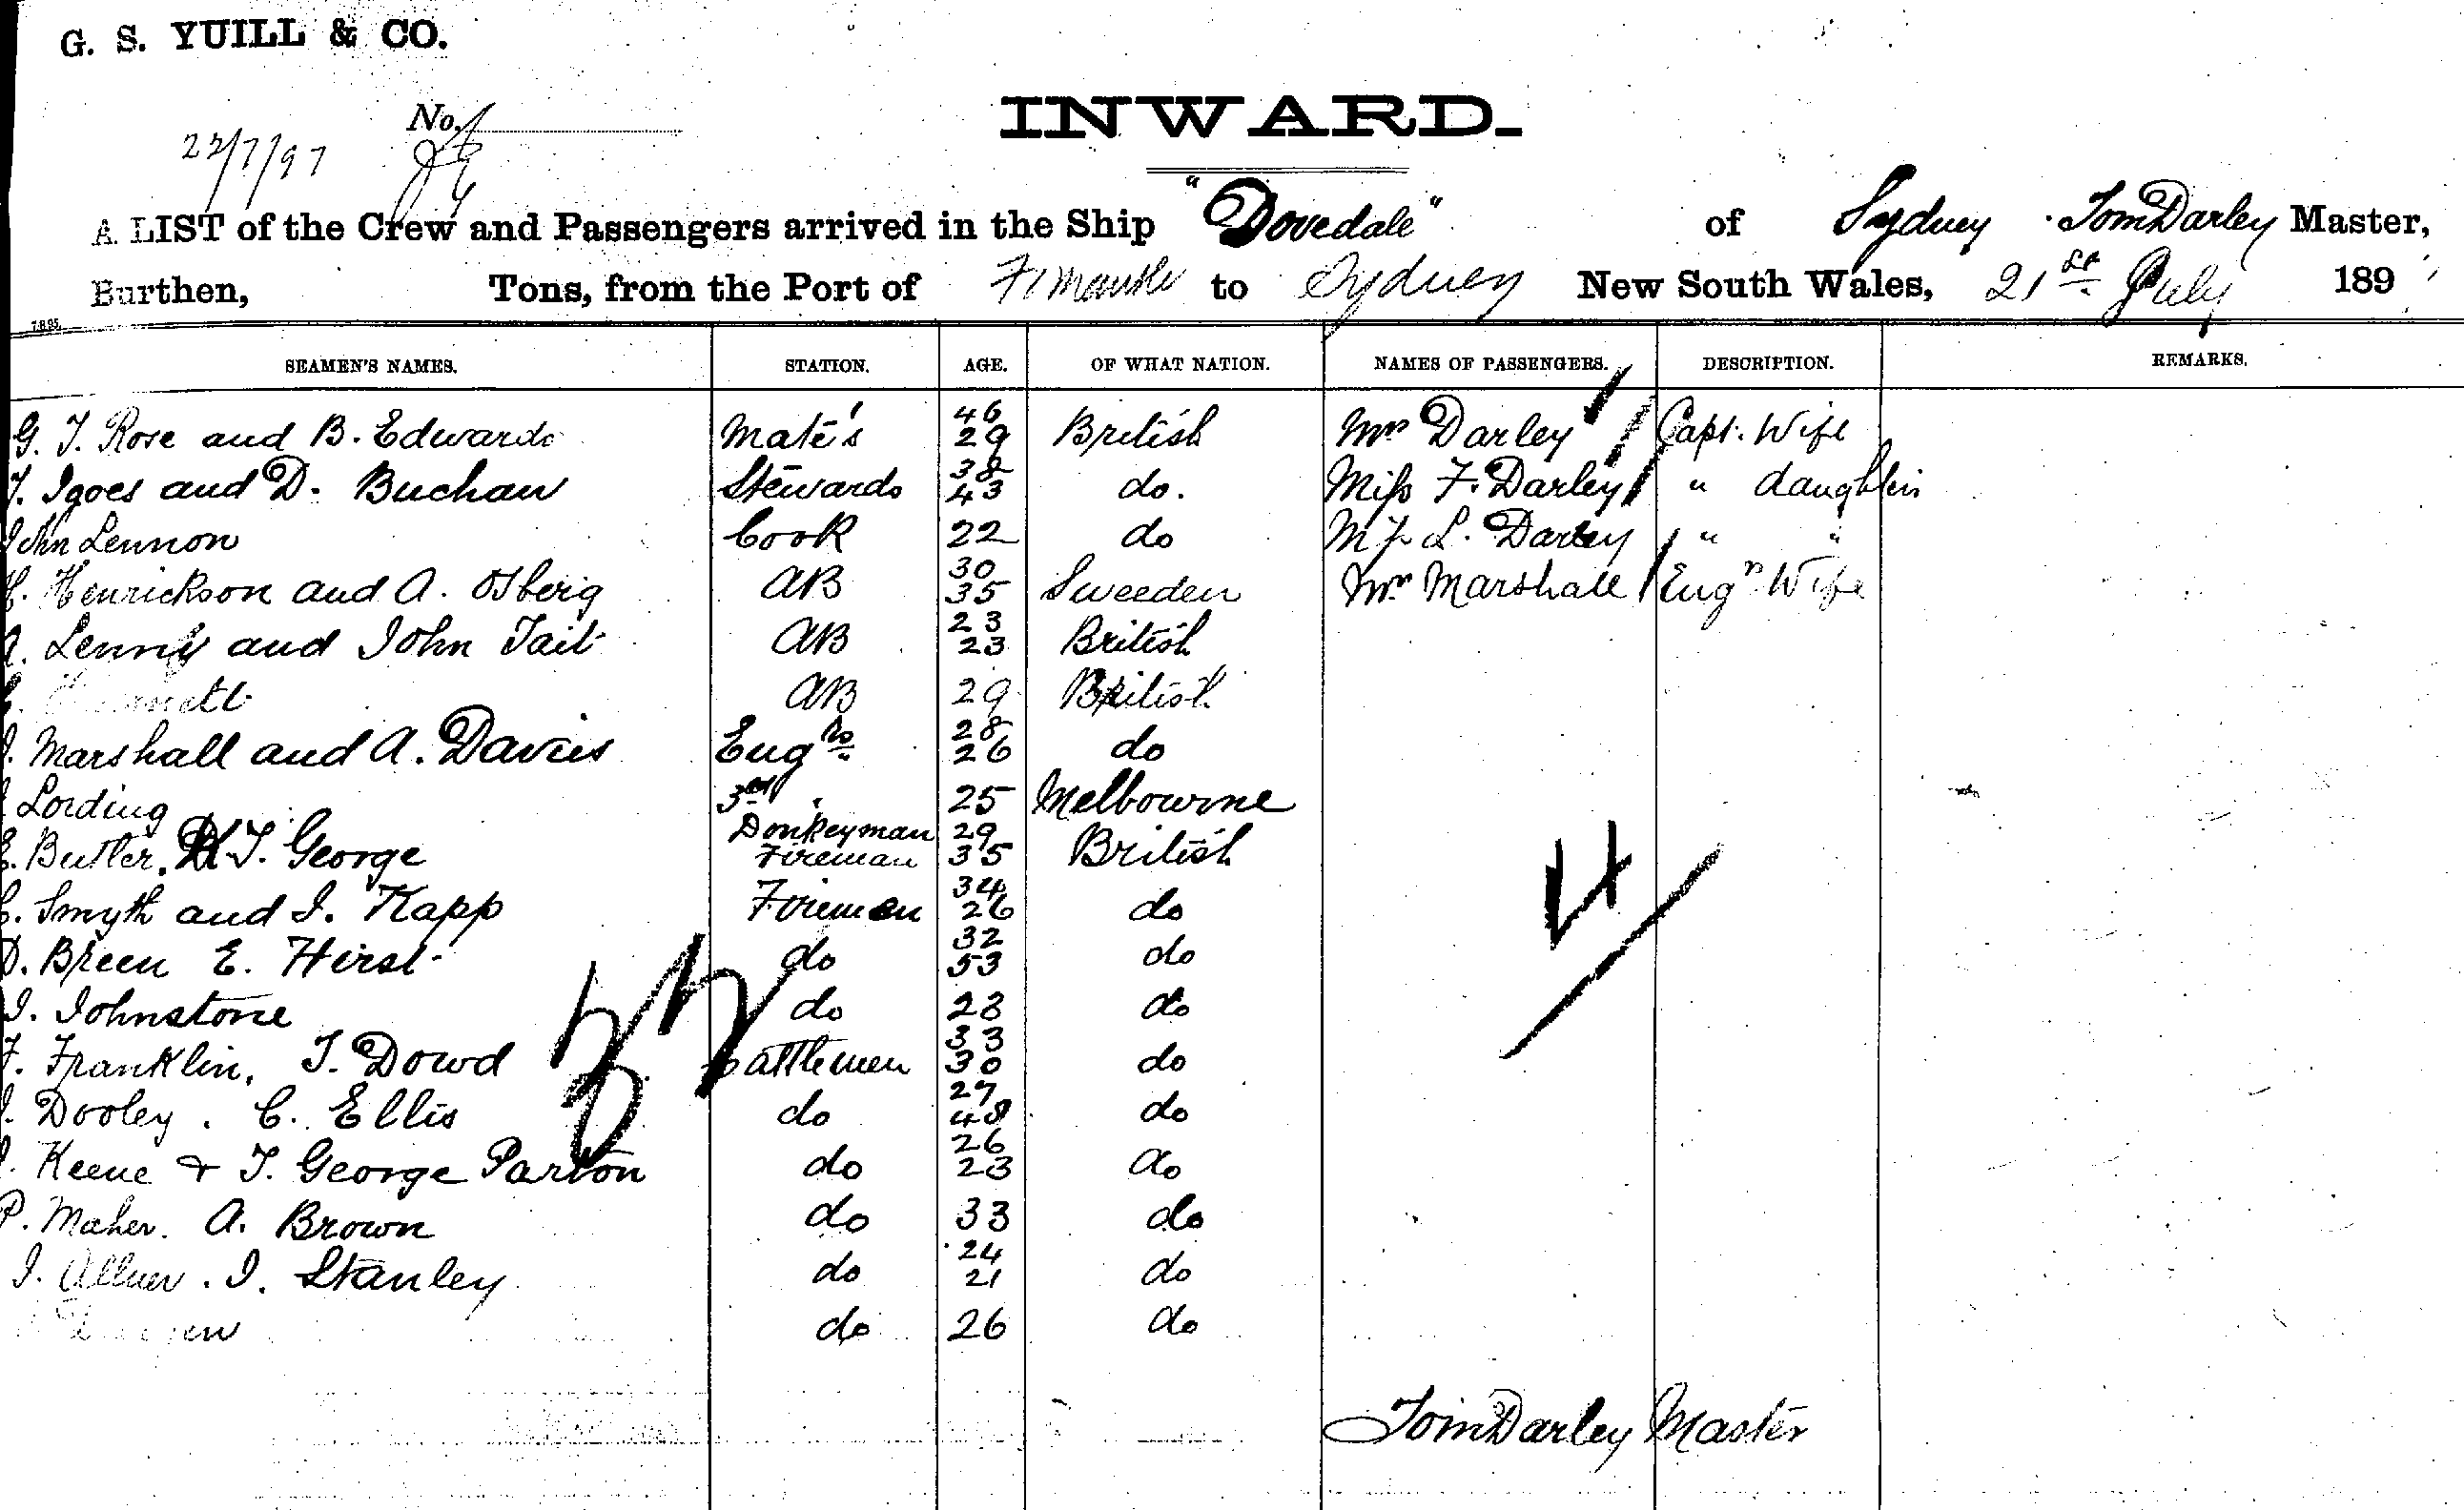 G. S. YUILL & CO.
No.
22/7/97
INWARD.
A LIST of the Crew and Passengers arrived in the Ship "Dovedale" of Sydney Tom Darley Master,
Burthen, Tons, from the Port of to Sydney New South Wales, 21st July 189
7.8.95.
SEAMEN'S NAMES. STATION. AGE. OF WHAT NATION. NAMES OF PASSENGERS. DESCRIPTION. REMARKS.
G. T. Rose and B. Edwards Mate's 46 29 British Mrs Darley Capt. Wife
T. Igoes and D. Buchan Stewards 38 43 do. Miss F. Darley " daughter
John Lennon Cook 22 do Miss L. Darley " "
Henrickson and A. Osberg AB 30 35 Sweeden Mrs Marshall Engrs Wife
A. Lenny and John Tait AB 23 23 British
AB 29 British
Marshall and A. Davies Engrs 28 26 do
Lording 3rd " 25 Melbourne
E. Butler. H. T. George Donkeyman Fireman 29 35 British
Smyth and J. Kapp Firemen 34 26 do
D. Breen E. Hirst do 32 53 do
J. Johnstone do 28 do
F. Franklin, T. Dowd Cattlemen 33 30 do
Dooley. C. Ellis do 27 48 do
Keene & T. George Parton do 26 23 do
P. Maher. A. Brown do 33 do
J. Allner. J. Stanley do 24 21 do
do 26 do
37
4
Tom Darley Master